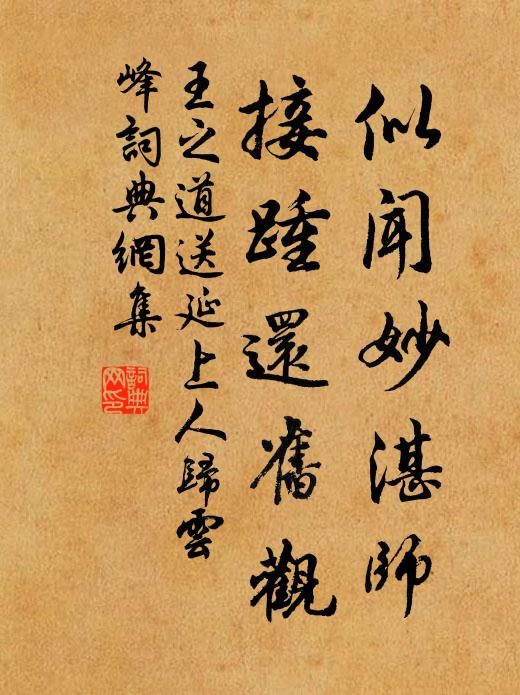 似闻妙湛師
接踵還舊觀
王之道送延上人歸雲
峰詞典網集
詞典
网印